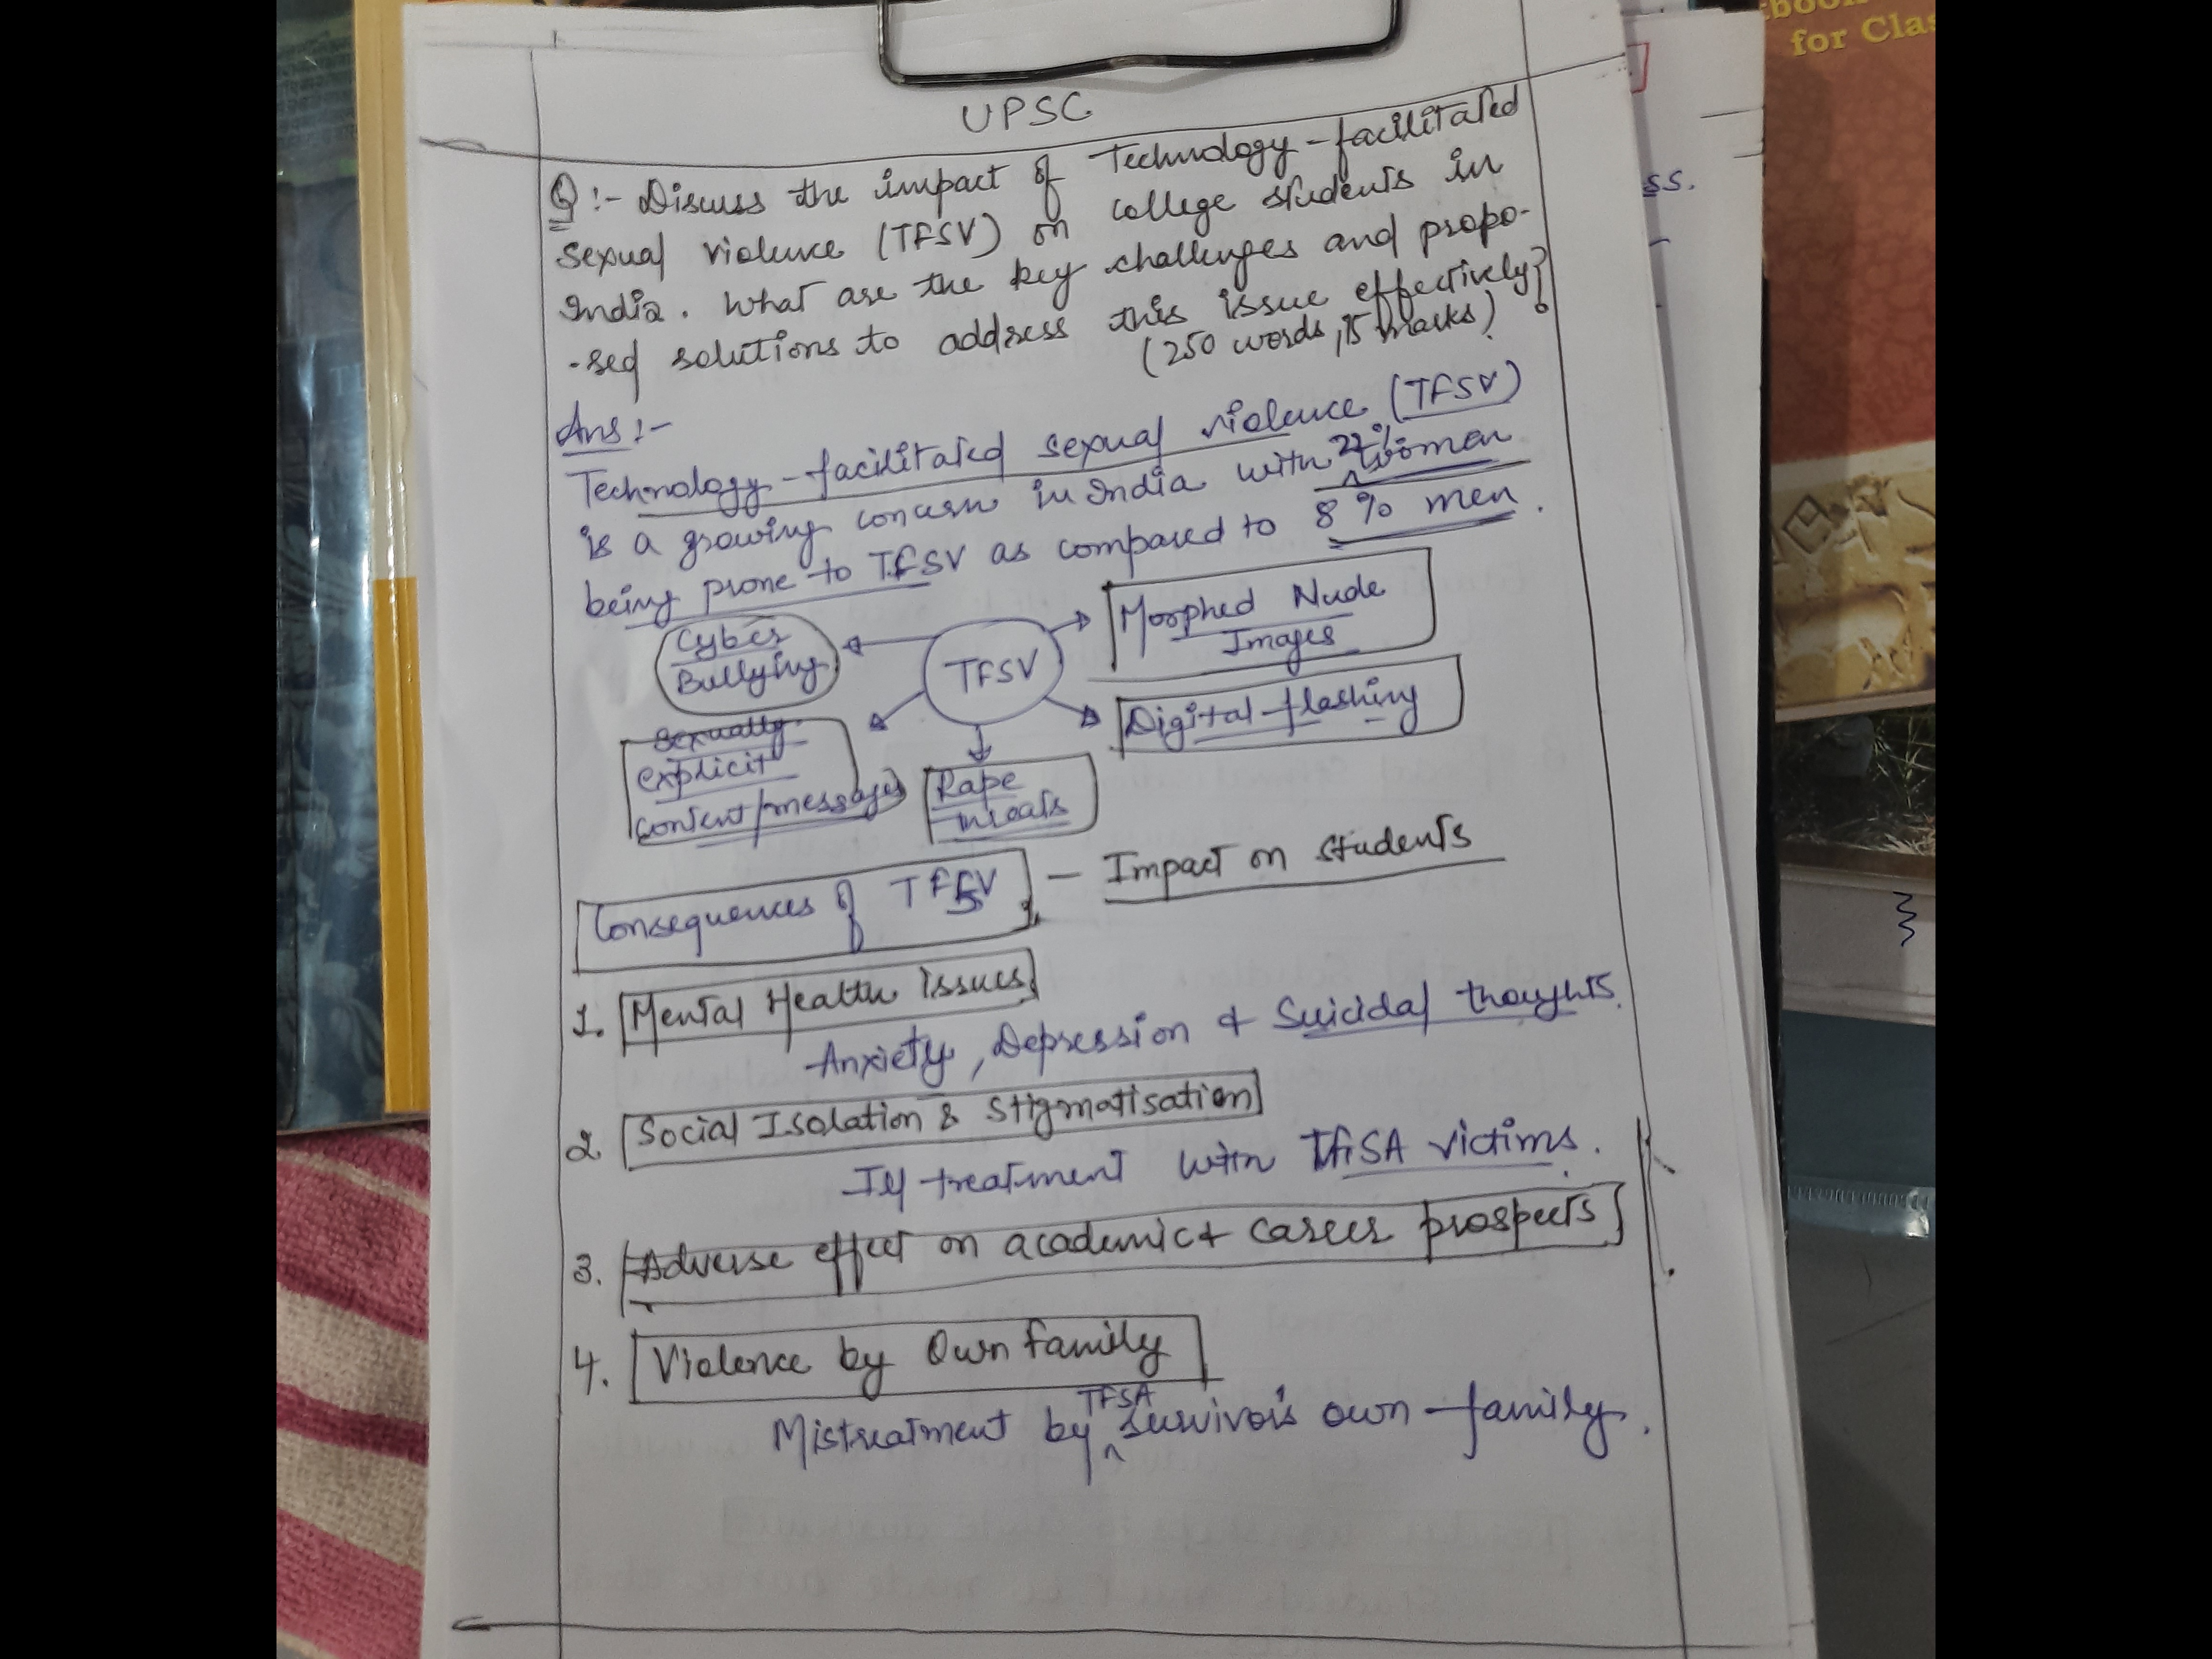 UPSC
Q :- Discuss the impact of Technology-facilitated
sexual violence (TFSV) on college students in
India. What are the key challenges and propo-
-sed solutions to address this issue effectively?
(250 words, 15 marks)
Ans :-
Technology-facilitated sexual violence (TFSV)
is a growing concern in India with women
being prone to TFSV as compared to 8% men.
Cyber
Bullying
TFSV
Morphed Nude
Images
Digital flashing
Sexually
explicit
content/messages
Rape
threats
Consequences of TFSV - Impact on students
1. Mental Health Issues
Anxiety, Depression & Suicidal thoughts.
2. Social Isolation & Stigmatisation
Ill treatment with TFSA victims.
3. Adverse effect on academic & career prospects
4. Violence by Own family
Mistreatment by TFSA survivor's own family.
ss.
book
for Clas